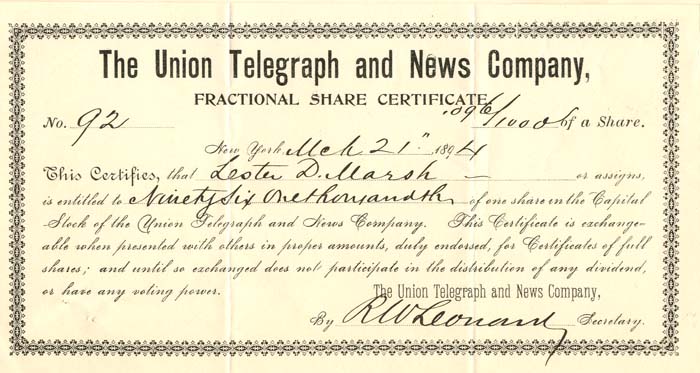 The Union Telegraph and News Company,
FRACTIONAL SHARE CERTIFICATE
No. 92 .096/1000 of a Share.
New York, Mch 21" 1894
This Certifies, that Lester D. Marsh or assigns,
is entitled to Ninety Six Onethousandth of one share in the Capital
Stock of the Union Telegraph and News Company. This Certificate is exchange-
able when presented with others in proper amounts, duly endorsed, for Certificates of full
shares; and until so exchanged does not participate in the distribution of any dividend,
or have any voting power.
The Union Telegraph and News Company,
By R W Leonard Secretary.